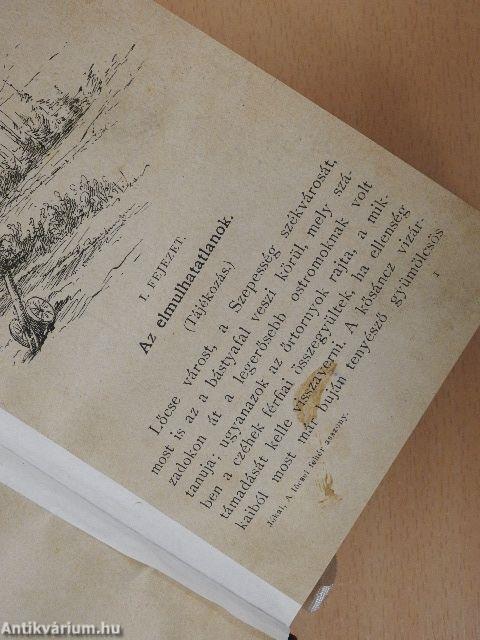 I. FEJEZET.
Az elmulhatatlanok.
(Tájékozás.)
Lőcse várost, a Szepesség székvárosát,
most is az a bástyafal veszi körül, mely szá-
zadokon át a legerősebb ostromoknak volt
tanuja; ugyanazok az őrtornyok rajta, a mik-
ben a czéhek férfiai összegyültek, ha ellenség
támadását kelle visszaverni. A kősáncz vizár-
kaiból most már buján tenyésző gyümölcsös
Jókai, A lőcsei fehér asszony.
1
Antikvárium.hu